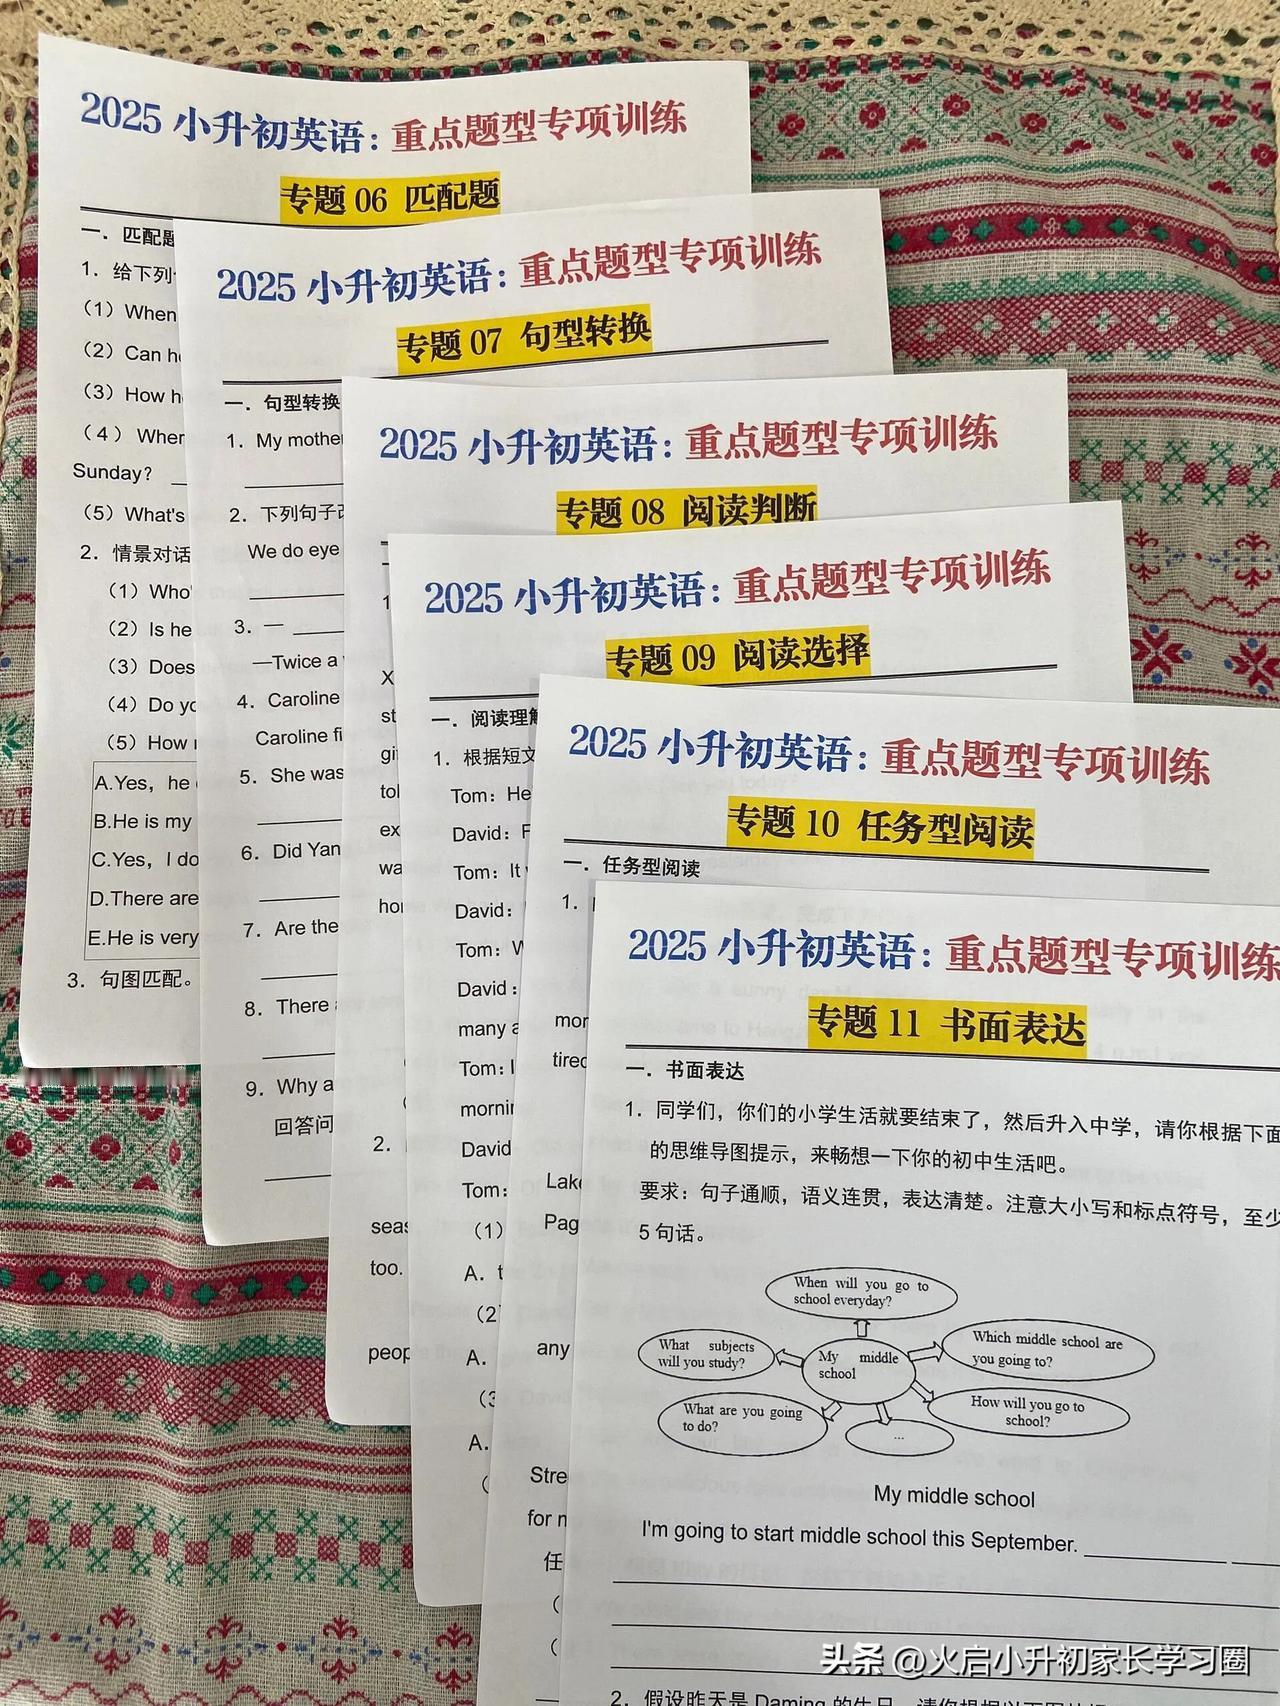 2025 小升初英语：重点题型专项训练
专题 06 匹配题
一．匹配题
1．给下列
（1）When
（2）Can he
（3）How
（4）When
Sunday?
（5）What's
2．情景对话
（1）Who'
（2）Is he
（3）Does
（4）Do yo
（5）How
A.Yes, he
B.He is my
C.Yes, I do
D.There are
E.He is very
3．句图匹配。
2025 小升初英语：重点题型专项训练
专题 07 句型转换
一．句型转换
1．My mothe
2．下列句子
We do eye
3．—
—Twice a
4．Caroline
Caroline fi
5．She was
6．Did Yan
7．Are the
8．There
9．Why a
回答问
2025 小升初英语：重点题型专项训练
专题 08 阅读判断
1
X
st
gi
tol
ex
wa
hor
2．
seas
too.
peop
2025 小升初英语：重点题型专项训练
专题 09 阅读选择
一．阅读理解
1．根据短文
Tom：He
David：F
Tom：It
David：
Tom：W
David：
many a
Tom：I
mornin
David
Tom：
（1）
A．t
（2
A．
（3
A．
（
2025 小升初英语：重点题型专项训练
专题 10 任务型阅读
一．任务型阅读
1．
mor
tired
Lake
Pag
any
Stre
for m
任
（
（
2025 小升初英语：重点题型专项训练
专题 11 书面表达
一．书面表达
1．同学们，你们的小学生活就要结束了，然后升入中学，请你根据下面
的思维导图提示，来畅想一下你的初中生活吧。
要求：句子通顺，语义连贯，表达清楚。注意大小写和标点符号，至少
5 句话。
When will you go to
school everyday?
What subjects
will you study?
My middle
school
Which middle school are
you going to?
What are you going
to do?
How will you go to
school?
...
My middle school
I'm going to start middle school this September.
2．假设昨天是 Daming 的生日，请你根据以下图片
头条 @火启小升初家长学习圈